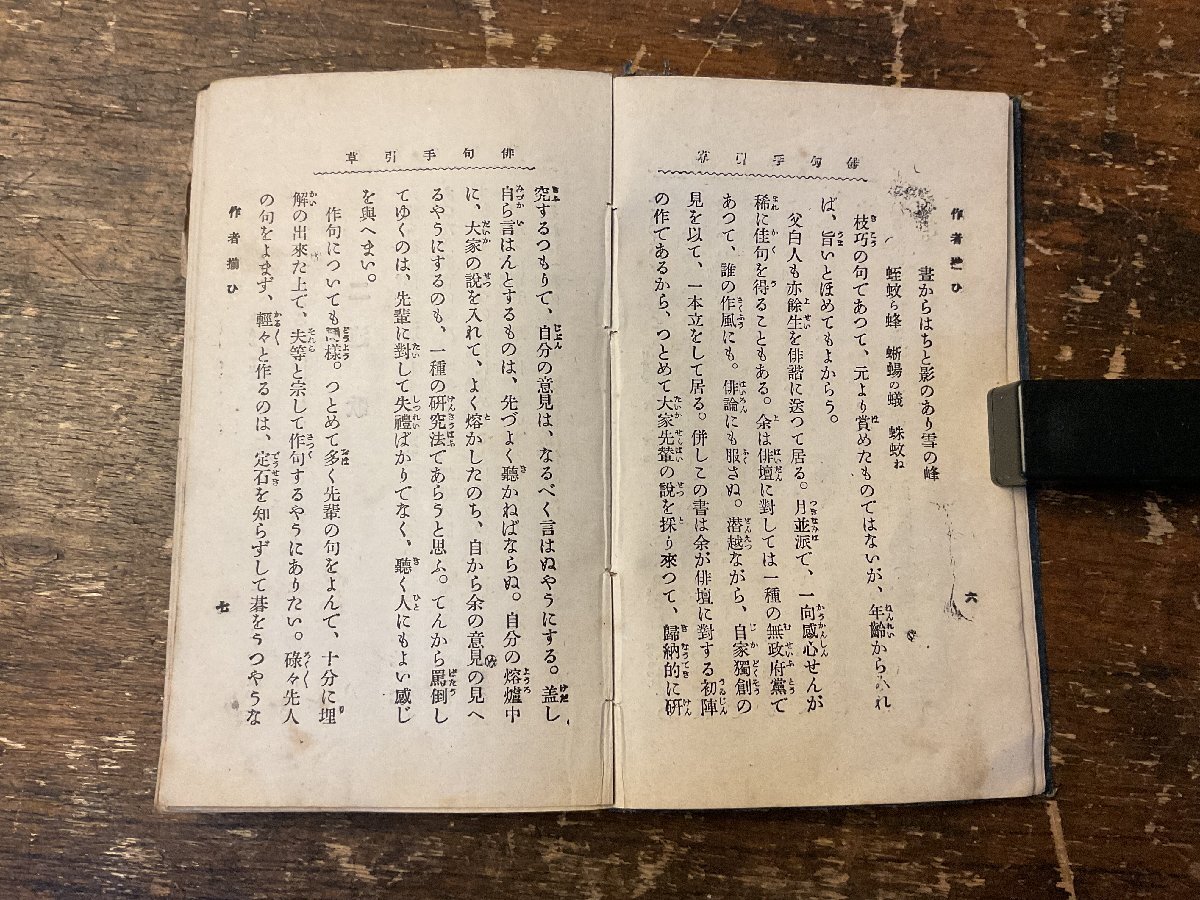 俳句手引草
作者揃ひ
晝からはちと影のあり雲の峰
蛭蚊ら蜂　蜥蝪の蟻　蛛蚊ね
枝巧の句であつて、元より賞めたものではないが、年齡から入れ
ば、旨いとほめてもよからう。
父白人も亦餘生を俳諧に送つて居る。月並派で、一向感心せんが
稀に佳句を得ることもある。余は俳壇に對しては一種の無政府黨で
あつて、誰の作風にも。俳論にも服さぬ。潜越ながら、自家獨創の
見を以て、一本立をして居る。併しこの書は余が俳壇に對する初陣
の作であるから、つとめて大家先輩の說を採り來つて、歸納的に研
六
俳句手引草
究するつもりて、自分の意見は、なるべく言はぬやうにする。盖し
自ら言はんとするものは、先づよく聽かねばならぬ。自分の熔爐中
に、大家の說を入れて、よく熔かしたのち、自から余の意見の見へ
るやうにするのも、一種の研究法であらうと思ふ。てんから罵倒し
てゆくのは、先輩に對して失禮ばかりでなく、聽く人にもよい感じ
を與へまい。
作句についても同樣。つとめて多く先輩の句をよんて、十分に理
解の出來た上で、夫等と宗して作句するやうにありたい。碌々先人
の句をよまず、輕々と作るのは、定石を知らずして碁をうつやうな
作者揃ひ
七